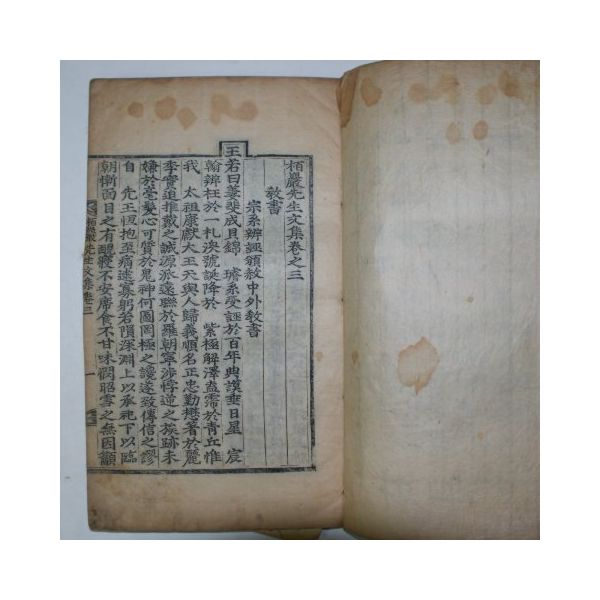 栢巖先生文集卷之三
敎書
宗系辨誣頒敎中外敎書
王若曰萋斐成貝錦 璿系受誣於百年典謨垂日星 宸
翰辨枉於一札渙號誕降於 紫極解澤益霈於靑丘惟
我 太祖康獻大王天與人歸義順名正忠勤懋著於麗
季實迫推戴之誠源派遠聯於羅朝寧涉悖逆之族跡未
嫌於毫髮心可質於鬼神何圖罔極之讒遂致傳信之謬
自 先王恆抱至痛逮寡躬若隕深淵上以承祀下以臨
朝慚面目之有靦寢不安席食不甘味閔昭雪之無因籲
栢巖先生文集卷三
一